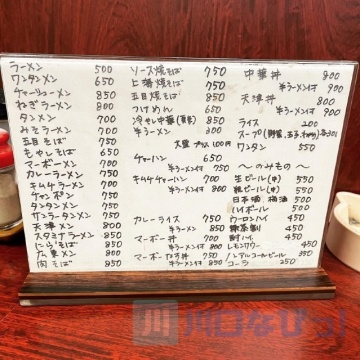 ラーメン 500
ワンタンメン 650
チャーシューメン 850
ねぎラーメン 800
タンメン 700
みそラーメン 700
五目そば 850
もやしそば 650
マーボーメン 700
カレーラーメン 700
キムチラーメン 700
チャンポン 750
タンタンメン 750
サンラータンメン 750
天津メン 850
スタミナラーメン 850
にらそば 850
広東メン 850
肉そば 850
ソース焼そば 750
上海焼そば 750
五目焼そば 850
つけめん 650
冷し中華(夏季) 850
半ラーメン 300
大盛 プラス100円
チャーハン 650
半ラーメン付 750
キムチチャーハン 700
半ラーメン付 800
カレーライス 750
半ラーメン付 850
マーボー丼 700
半ラーメン付 800
マーボーなす丼 750
半ラーメン付 850
中華丼 800
半ラーメン付 900
天津丼 800
半ラーメン付 900
ライス 200
スープ(野菜、玉子、わかめ)各300
ワンタン 550
〜のみもの〜
生ビール(中) 550
瓶ビール(中) 550
日本酒、梅酒 500
ハイボール 500
ウーロンハイ 450
緑茶割 450
酎ハイ 450
レモンサワー 450
ノンアルコールビール 350
コーラ 250
川口なびっ!